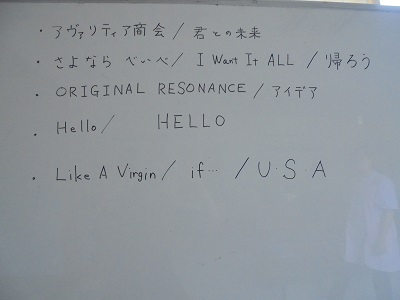 ・アヴァリティア商会/君との未来
・さよなら べいべ/ I Want It ALL / 帰ろう
・ORIGINAL RESONANCE/アイデア
・Hello/ HELLO
・Like A Virgin/ if… /U・S・A